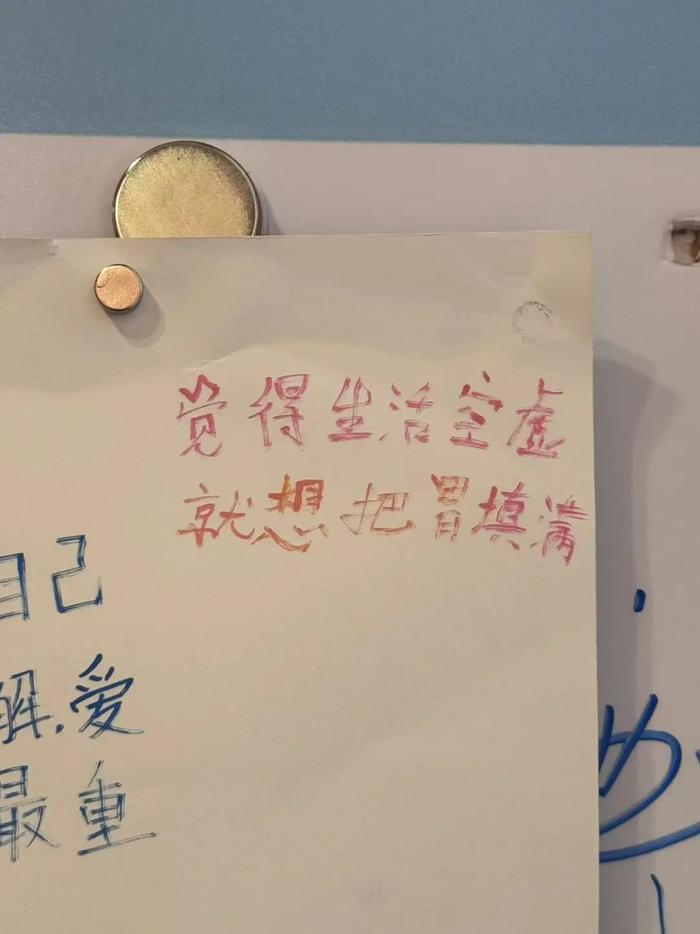 觉得生活空虚
就想把胃填满
自己
解.爱
最重